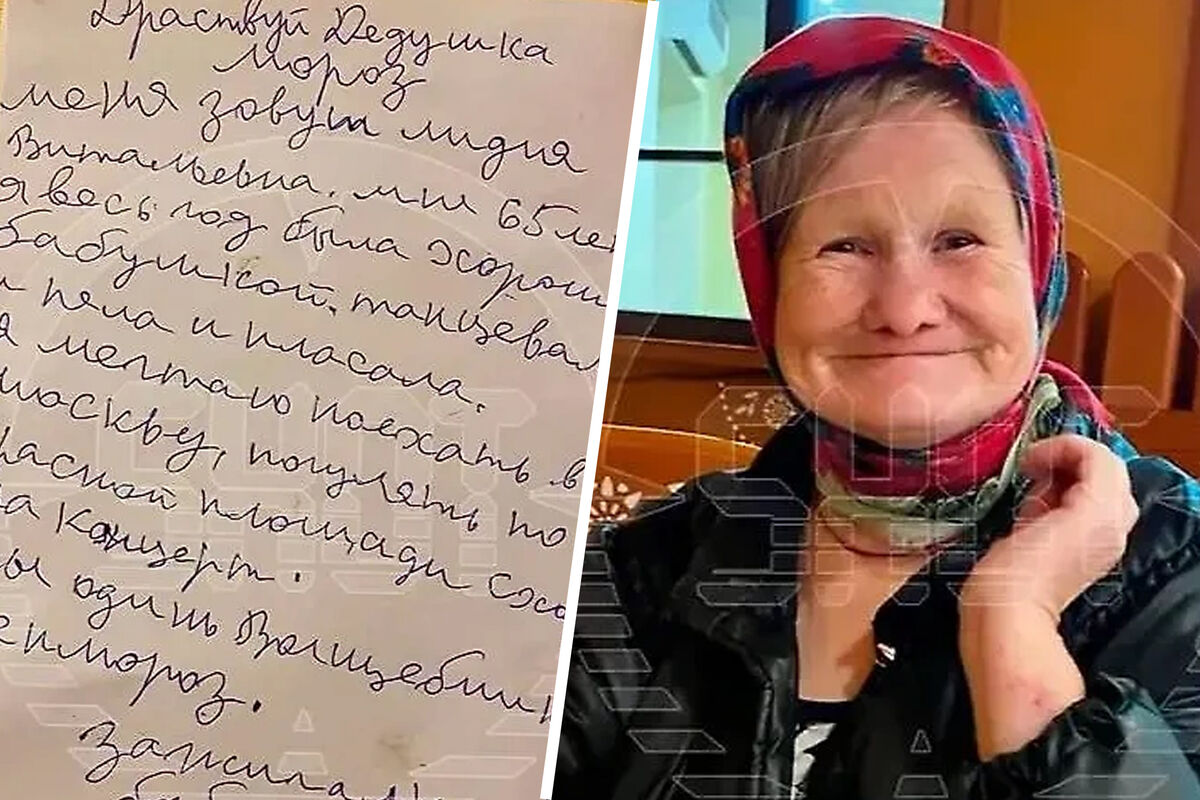 Драствуй Дедушка
мороз
меня зовут лидия
Витальевна. мне 65 лет
я весь год была хорош
бабушкой. танцевал
и пела и пласала.
я мептаю поехать в
москву, погулять по
расной площади схо
на концерт.
ты одинь Волщебник
мороз.